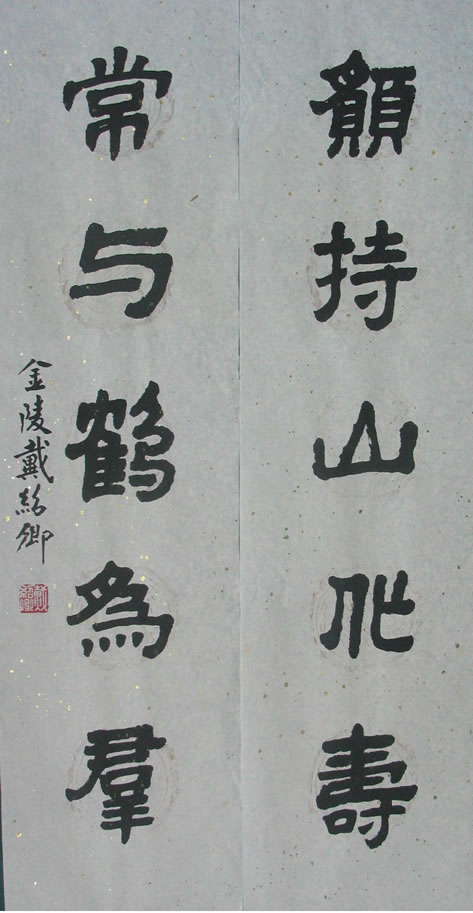 願持山作壽
常与鶴為羣
金陵戴紹卿